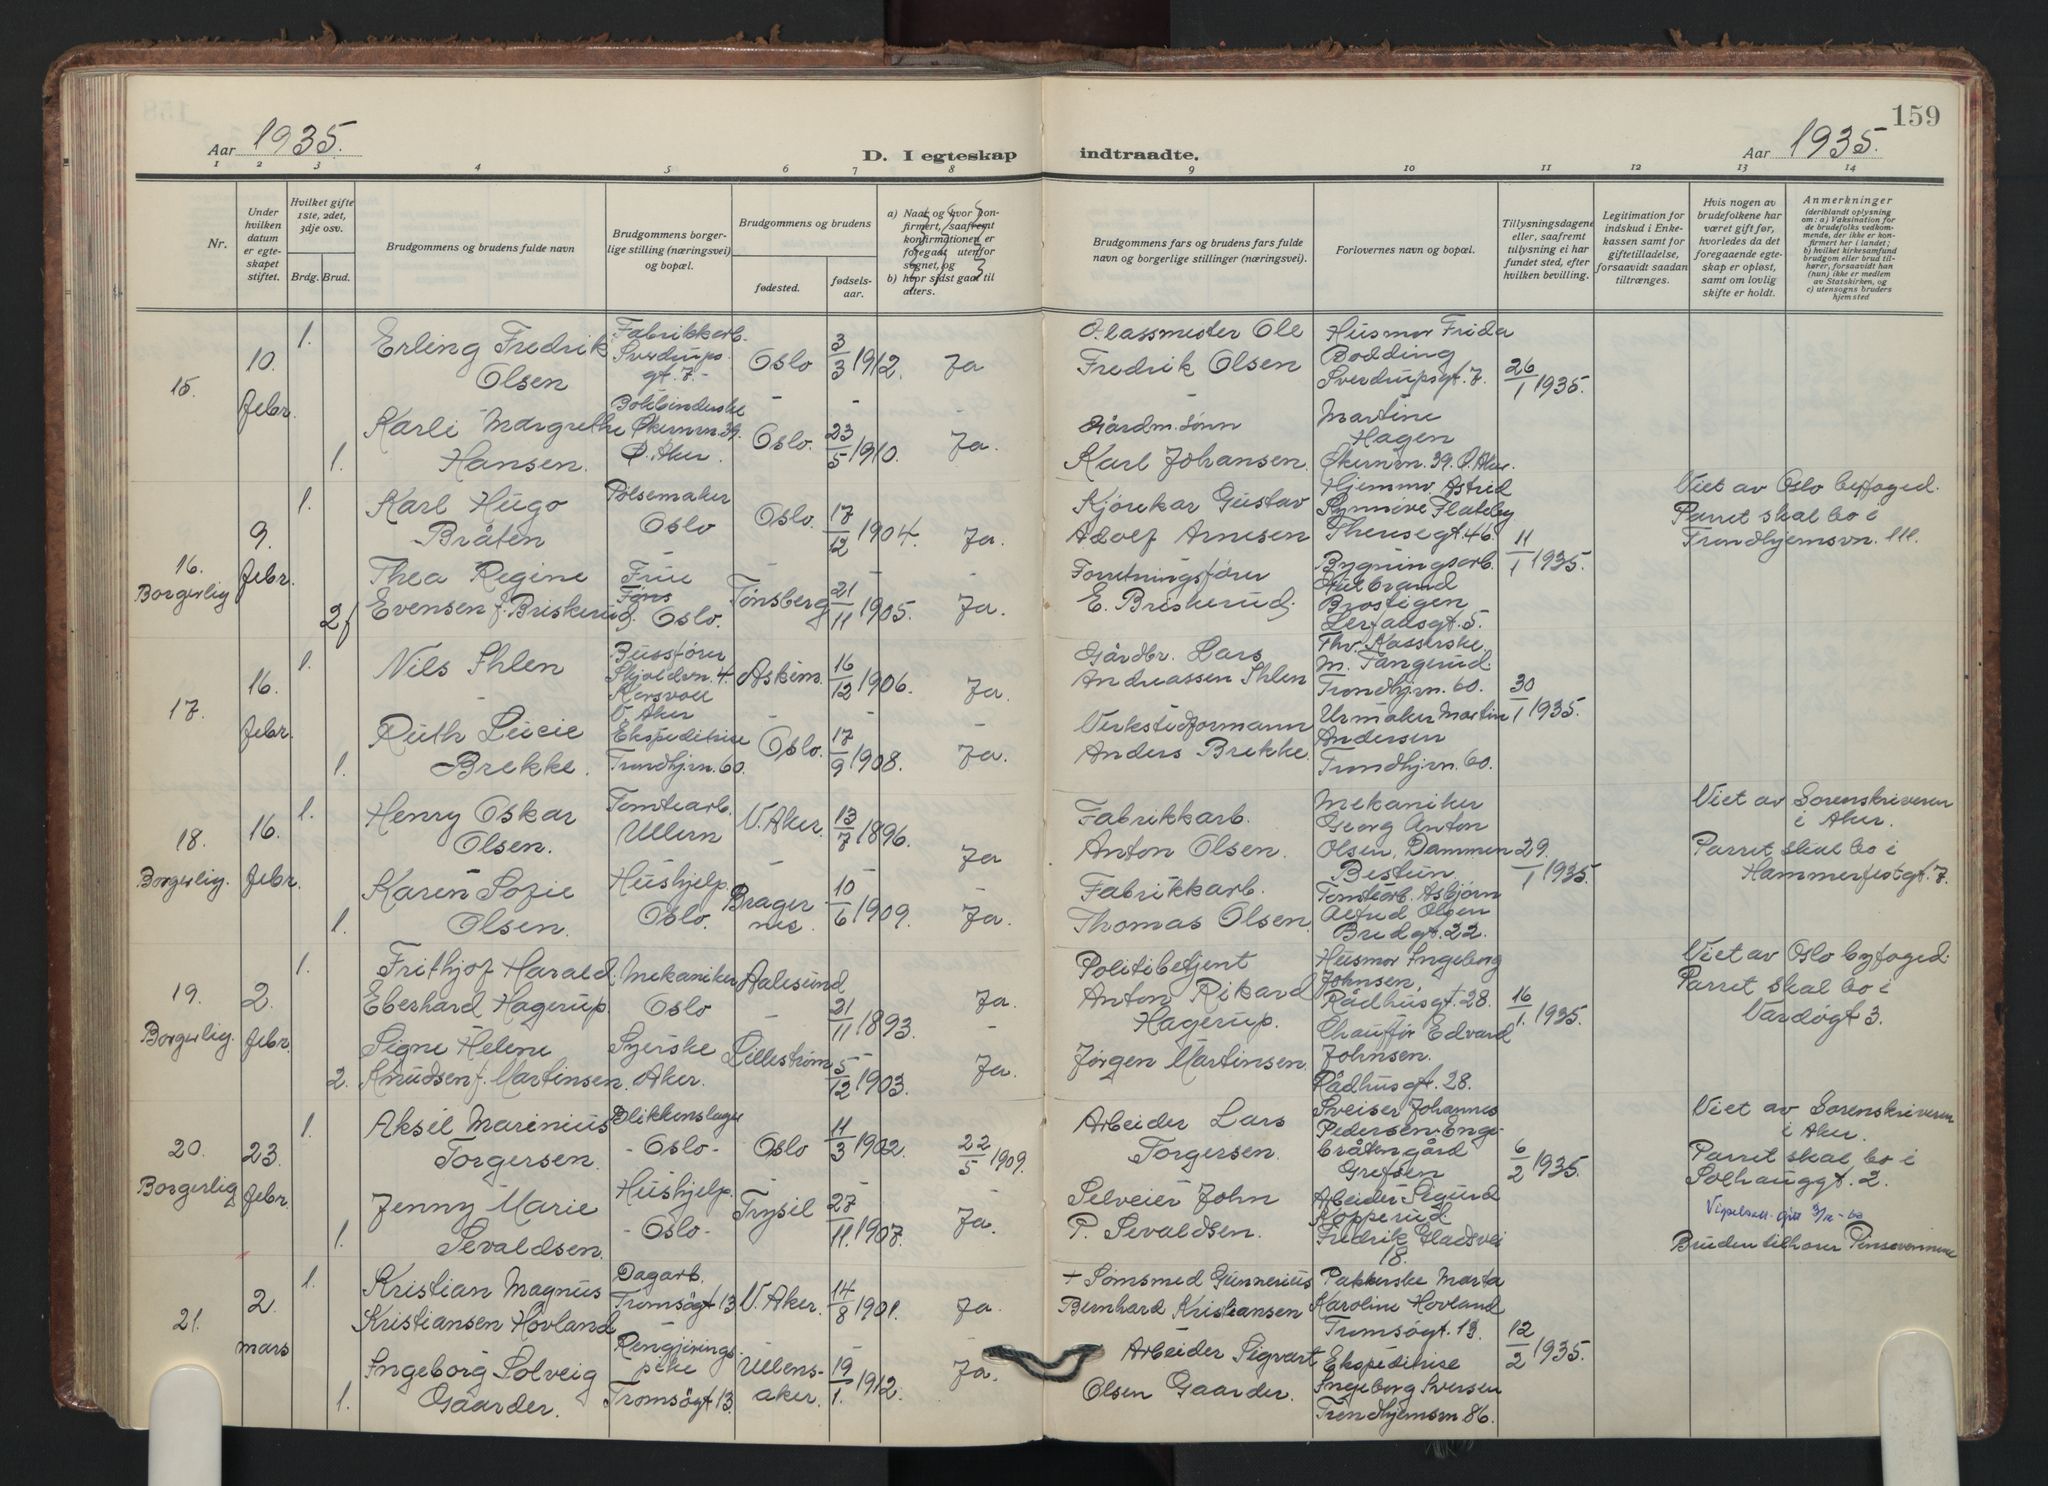 159
Aar 1935.
D. I egteskap indtraadte.
Aar 1935.
1 2 3 4 5 6 7 8 9 10 11 12 13 14
Nr.
Under hvilken datum er egteskapet stiftet.
Hvilket gifte 1ste, 2det, 3dje osv.
Brdg. Brud.
Brudgommens og brudens fulde navn
Brudgommens borgerlige stilling (næringsvei) og bopæl.
Brudgommens og brudens
fødested.
fødselsaar.
a) Naar og hvor konfirmert, saafremt konfirmationen er foregaat utenfor sognet, og
b) hvor sidst gaat til alters.
Brudgommens fars og brudens fars fulde navn og borgerlige stillinger (næringsvei).
Forlovernes navn og bopæl.
Tillysningsdagene eller, saafremt tillysning ei har fundet sted, efter hvilken bevilling.
Legitimation for indskud i Enkekassen samt for giftetilladelse, forsaavidt saadan tiltrænges.
Hvis nogen av brudefolkene har været gift før, hvorledes da det foregaaende egteskap er opløst, samt om lovlig skifte er holdt.
Anmerkninger
(deriblandt oplysning om: a) Vaksination for de brudefolks vedkommende, der ikke er konfirmert her i landet; b) hvilket kirkesamfund brudgom eller brud tilhører, forsaavidt han (hun) ikke er medlem av Statskirken, og c) utensogns bruders hjemsted
15.
10. febr.
1.
Erling Fredrik
Olsen
Fabrikkarb.
Sverdrups
gt. 7.-
Oslo 3/3 1912. Ja
Glassmester Ole
Fredrik Olsen
Husmor Frida
Bodding
Sverdrupsgt. 7.
26/1 1935.
1.
Karli Margrethe
Hansen.
Bokbinderske
Økernvn. 39.
Ø. Aker.
Oslo. 23/5 1910. Ja.
Gårdm. sønn
Karl Johansen.
Martine
Hagen
Økernvn. 39. Ø. Aker.
16.
Borgerlig
9. febr.
1.
Karl Hugo
Bråten
Pølsemaker
Oslo
Oslo. 17/12 1904. Ja.
Kjørekar Gustav
Adolf Arnesen
Hjemmv. Astrid
Synnive Flateby
Theresegt. 46
11/1 1935.
Viet av Oslo byfoged.
Parret skal bo i
Trondhjemsvn. 111.
2f
Thea Regine
Evensen f. Briskerud.
Frue
Oslo.
Tønsberg 21/11 1905. Ja.
Forretningsfører
E. Briskerud.
Bygningsarb.
Brostigen
17.
16. febr.
1.
Nils Ihlen
Bussfører
Skjoldvn. 4.
Korsvoll
V. Aker
Askim. 16/12 1906. Ja.
Gårdbr. Lars
Andreassen Ihlen
Fhv. Kasserske
M. Tangerud.
Trondhj.vn. 60.
30/1 1935.
1.
Ruth Lucie
Brekke.
Ekspeditrise
Trondhj.vn. 60.
Oslo. 17/9 1908. Ja.
Verkstedformann
Anders Brekke.
Urmaker Martin
Andersen
Trondhj.vn. 60.
18.
Borgerlig.
16. febr.
1.
Henry Oskar
Olsen.
Tomtearb.
Ullern
V. Aker. 13/7 1896. Ja
Fabrikkarb.
Anton Olsen.
Mekaniker
Georg Anton
Olsen, Dammen
Bestun.
29./1 1935.
Viet av Sorenskriveren
i Aker.
Parret skal bo i
Hammerfestgt. 7.
1.
Karen Sofie
Olsen.
Hushjelp.
Oslo.
Bragernes. 10/6 1909. Ja.
Fabrikkarb.
Thomas Olsen
Tomtearb. Asbjørn
Alfred Olsen
Bredgt. 22.
19.
Borgerlig.
2. febr.
1.
Frithjof Harald
Eberhard Hagerup.
Mekaniker
Oslo
Aalesund 21/11 1893. Ja.
Politibetjent
Anton Rikard
Hagerup.
Husmor Ingeborg
Johnsen,
Rådhusgt. 28.
16/1. 1935.
Viet av Oslo byfoged.
Parret skal bo i
Vardøgt 3.
2.
Signe Helene
Knudsen f. Martinsen.
Syerske
Aker.
Lillestrøm 5/12 1903. Ja.
Jørgen Martinsen.
Chauffør Edvard
Johnsen.
Rådhusgt. 28.
20.
Borgerlig
23. febr.
1.
Aksel Marinius
Torgersen.
Blikkenslager
-Oslo-
Oslo 11/3 1902. 22/5 1909.
Arbeider Lars
Torgersen.
Sveiser Johannes
Pedersen. Engebråten gård
Grefsen
6/2 1935.
Viet av Sorenskriveren
i Aker.
Parret skal bo i
Solhauggt. 2.
1.
Jenny Marie
Sevaldsen.
Hushjelp.
-Oslo-
Trysil 27/11. 1907. Ja.
Selveier John
P. Sevaldsen.
Arbeider Sigurd
Kopperud.
Fredrik Gladsvei
18.
Bruden tilhører Pinsevennene
21.
2. mars
1.
Kristian Magnus
Kristiansen Hovland
Dagarb.
Tromsøgt 13
V. Aker. 14/8 1901. Ja.
+ Sømsmed Gunnerius
Bernhard Kristiansen
Pakkerske Marta
Karoline Hovland
Tromsøgt. 13.
12/2 1935.
1.
Ingeborg Solveig
Gaarder.
Rengjøringspike
Tromsøgt 13.
Ullensaker. 19/1. 1912. Ja.
Arbeider Sigvart
Olsen Gaarder.
Ekspeditrise
Ingeborg Iversen
Trondhjemsvn 86.